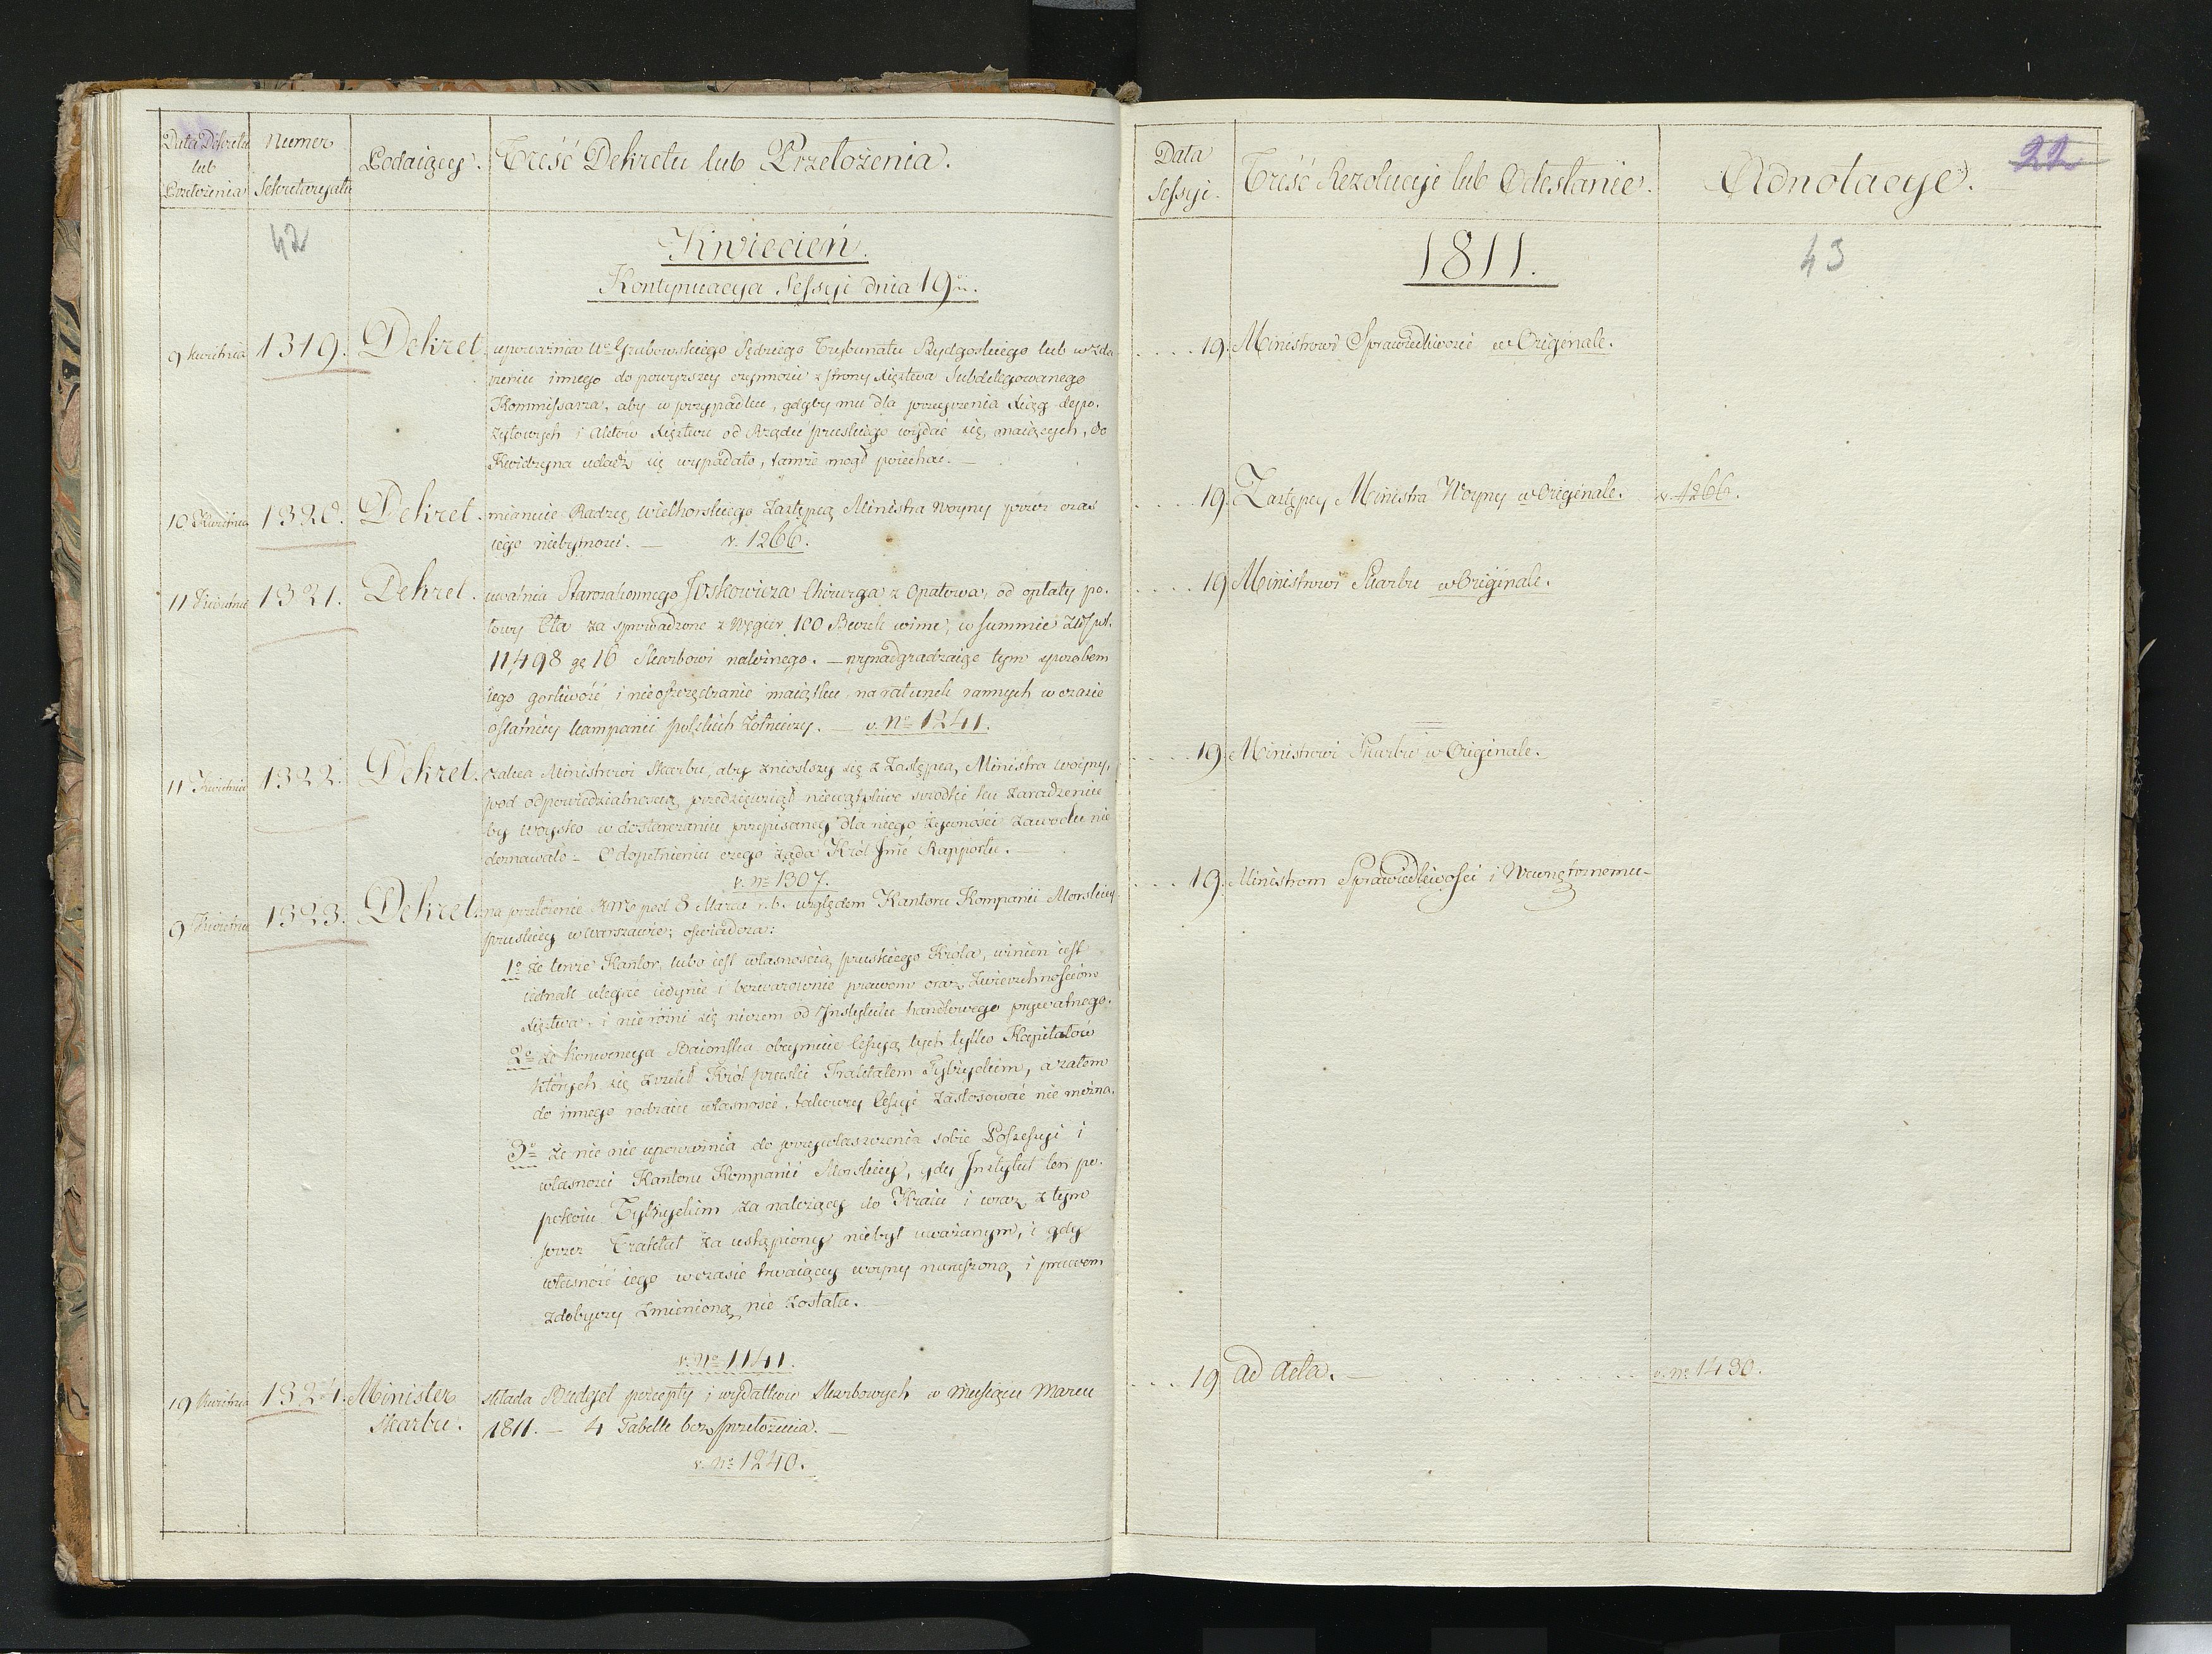 Data Dekretu
lub
Przełożenia
Numer
Sekretaryatu
Podaiący.
Treść Dekretu lub Przełożenia.
42
Kwiecień.
Kontynuacya Sessyi dnia 19
9 Kwietnia 1319. Dekret. upoważnia Wo Grabowskiego Sędziego Trybunału Bydgoskiego lub w zda
rzeniu innego do powyższey czynności z strony Xięztwa Subdelegowanego
Kommissarza, aby w przypadku, gdyby mu dla przeyrzenia Xiąg depo.
zytowych i Aktów Xięztwu od Rządu pruskiego wydać się maiących, do
Kwidzyna udadź się wypadało, tamże mógł poiechać. —
10 Kwietnia 1320. Dekret. mianuie Radzcę Wielhorskiego Zastępcą Ministra Woyny przez czas
iego niebytności. — v. 1266.
11 Kwietnia 1321. Dekret. uwalnia Starozakonnego Joskowicza Chirurga z Opatowa, od opłaty po.
łowy Cła za sprowadzone z Węgier 100 Beczek wina, w summie Złł pol.
11,498 gę 16 Skarbowi należnego. — wynadgradzaiąc tym sposobem
iego gorliwość i nieoszczędzanie maiątku, na ratunek rannych w czasie
ostatniey kampanii polskich Żołnierzy. — v. No 1241.
11 Kwietnia 1322. Dekret. zaleca Ministrowi Skarbu, aby zniosłszy się z Zastępcą Ministra Woyny,
pod odpowiedzialnością przedsięwziął niewątpliwe srodki ku zaradzeniu
by woysko w dostarczaniu przepisaney dla niego żywności zawodu nie
doznawało — O dopełnieniu czego żąda Król Jmć Rapportu. —
v. No 1307.
9 Kwietnia 1323. Dekret. na przełożenie pod 8 Marca r. b. względem Kantoru Kompanii Morskiey
pruskiey w Warszawie; oświadcza:
1o że tenże Kantor, lubo iest własnością pruskiego Króla, winien iest
iednak ulegać iedynie i bezwarownie prawom oraz Zwierzchnościom
Xięztwa, i nie różni się niczem od Instytutu handlowego prywatnego.
2o że Konwencya Baiońska obeymuie Cessyą tych tylko Kapitałów
których się zrzekł Król pruski Traktatem Tylżyckim, a zatem
do innego rodzaiu własności, takowey Cessyi zastosować nie można.
3o że nic nie upoważnia do przywłaszczenia sobie Possessyi i
własności Kantoru Kompanii Morskiey, gdy Instytut ten po.
pokoiu Tylżyckim za należący do Kraiu i wraz z tym
przez Traktat za ustąpiony niebył uważanym, i gdy
własność iego w czasie trwaiącey woyny naruszoną i prawem
zdobyczy zmienioną nie została. —
v. No 1141.
19 Kwietnia 1324. Minister
Skarbu.
składa Budżet percepty i wydatków Skarbowych w Miesiącu Marcu
1811. — 4 Tabelle bez przełożenia. —
v. No 1240.
Data
Sessyi.
Treść Rezolucyi lub Odesłanie.
Adnotacye.
22
1811.
43
19. Ministrowi Sprawiedliwości w Originale.
19. Zastępcy Ministra Woyny w Originale. v. 1266.
19 Ministrowi Skarbu w Originale.
19. Ministrowi Skarbu w Originale.
19. Ministrom Sprawiedliwości i Wewnętrznemu —
19 ad Acta. — v. No 1430.